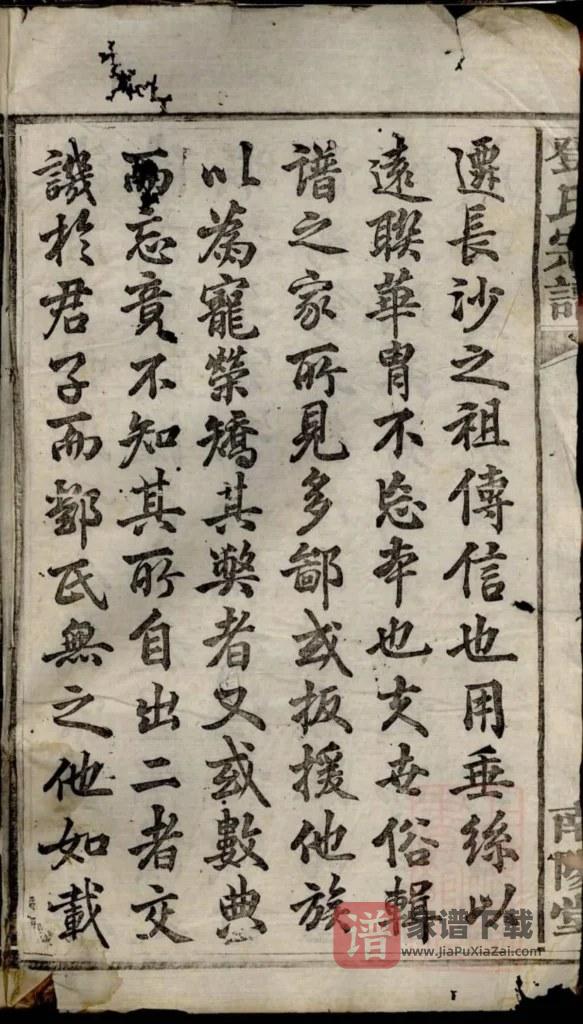 鄧氏宗譜
南陽堂
遷長沙之祖傳信也用垂絲以
遠聯華胄不忘本也夫世俗輯
谱之家所見多鄙或扳援他族
以為寵榮矯其弊者又或數典
而忘竟不知其所自出二者交
譏於君子而鄧氏無之他如載
谱 家谱下载
www.JiaPuXiaZai.com